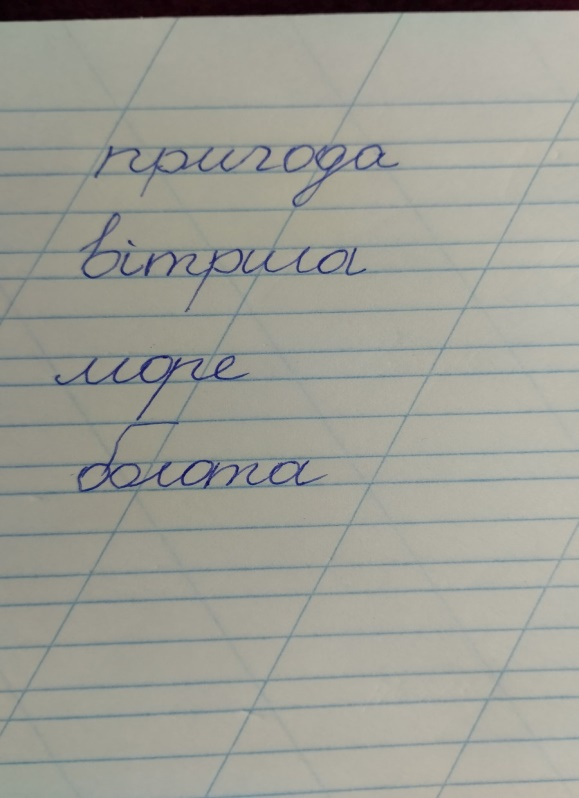 пригода
вітрила
море
болота